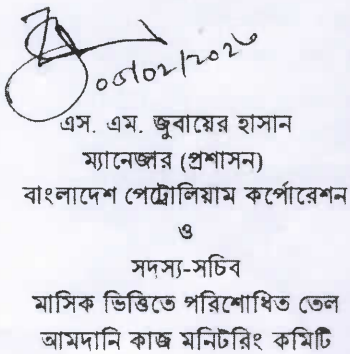 ০৫/০২/২০২৬
এস. এম. জুবায়ের হাসান
ম্যানেজার (প্রশাসন)
বাংলাদেশ পেট্রোলিয়াম কর্পোরেশন
ও
সদস্য-সচিব
মাসিক ভিত্তিতে পরিশোধিত তেল
আমদানি কাজ মনিটরিং কমিটি